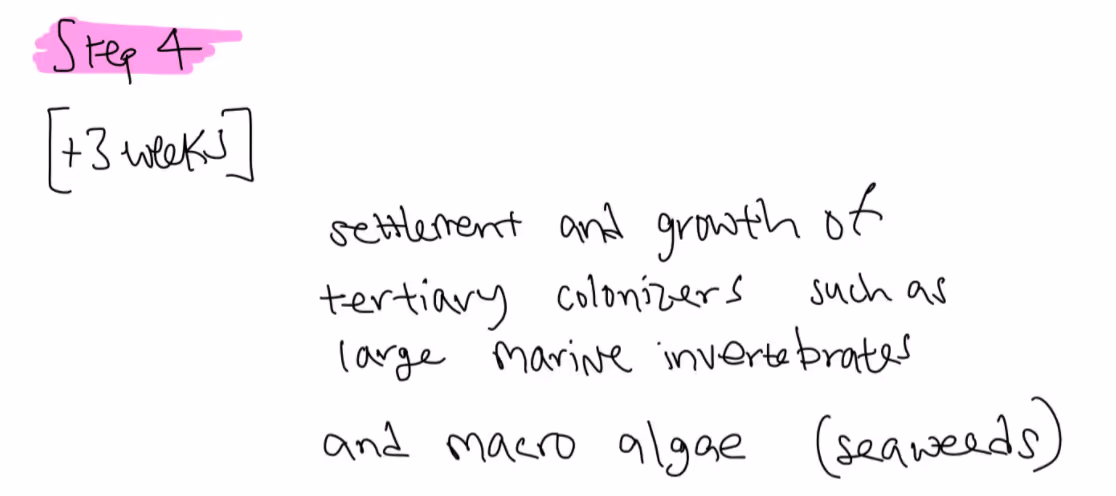 Step 4
[+3 weeks]
settlement and growth of
tertiary colonizers such as
large marine invertebrates
and macro algae (seaweeds)